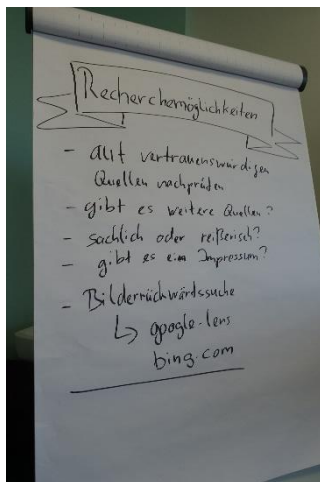 Recherchemöglichkeiten
- auf vertrauenswürdigen
Quellen nachprüfen
- gibt es weitere Quellen?
- sachlich oder reißerisch?
- gibt es ein Impressum?
- Bilderrückwärtssuche
↳ google-lens
bing.com